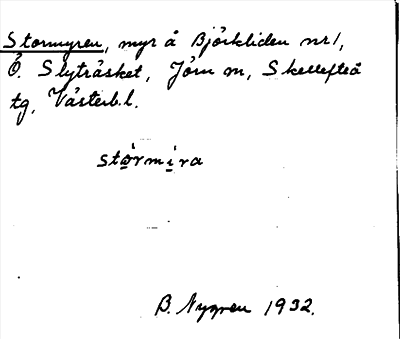 Stormyren, myr å Björkliden nr 1,
Ö. Slyträsket, Jörn sn, Skellefteå
tg, Västerb. l.
stò̱rmì̱ra
B. Nygren 1932.